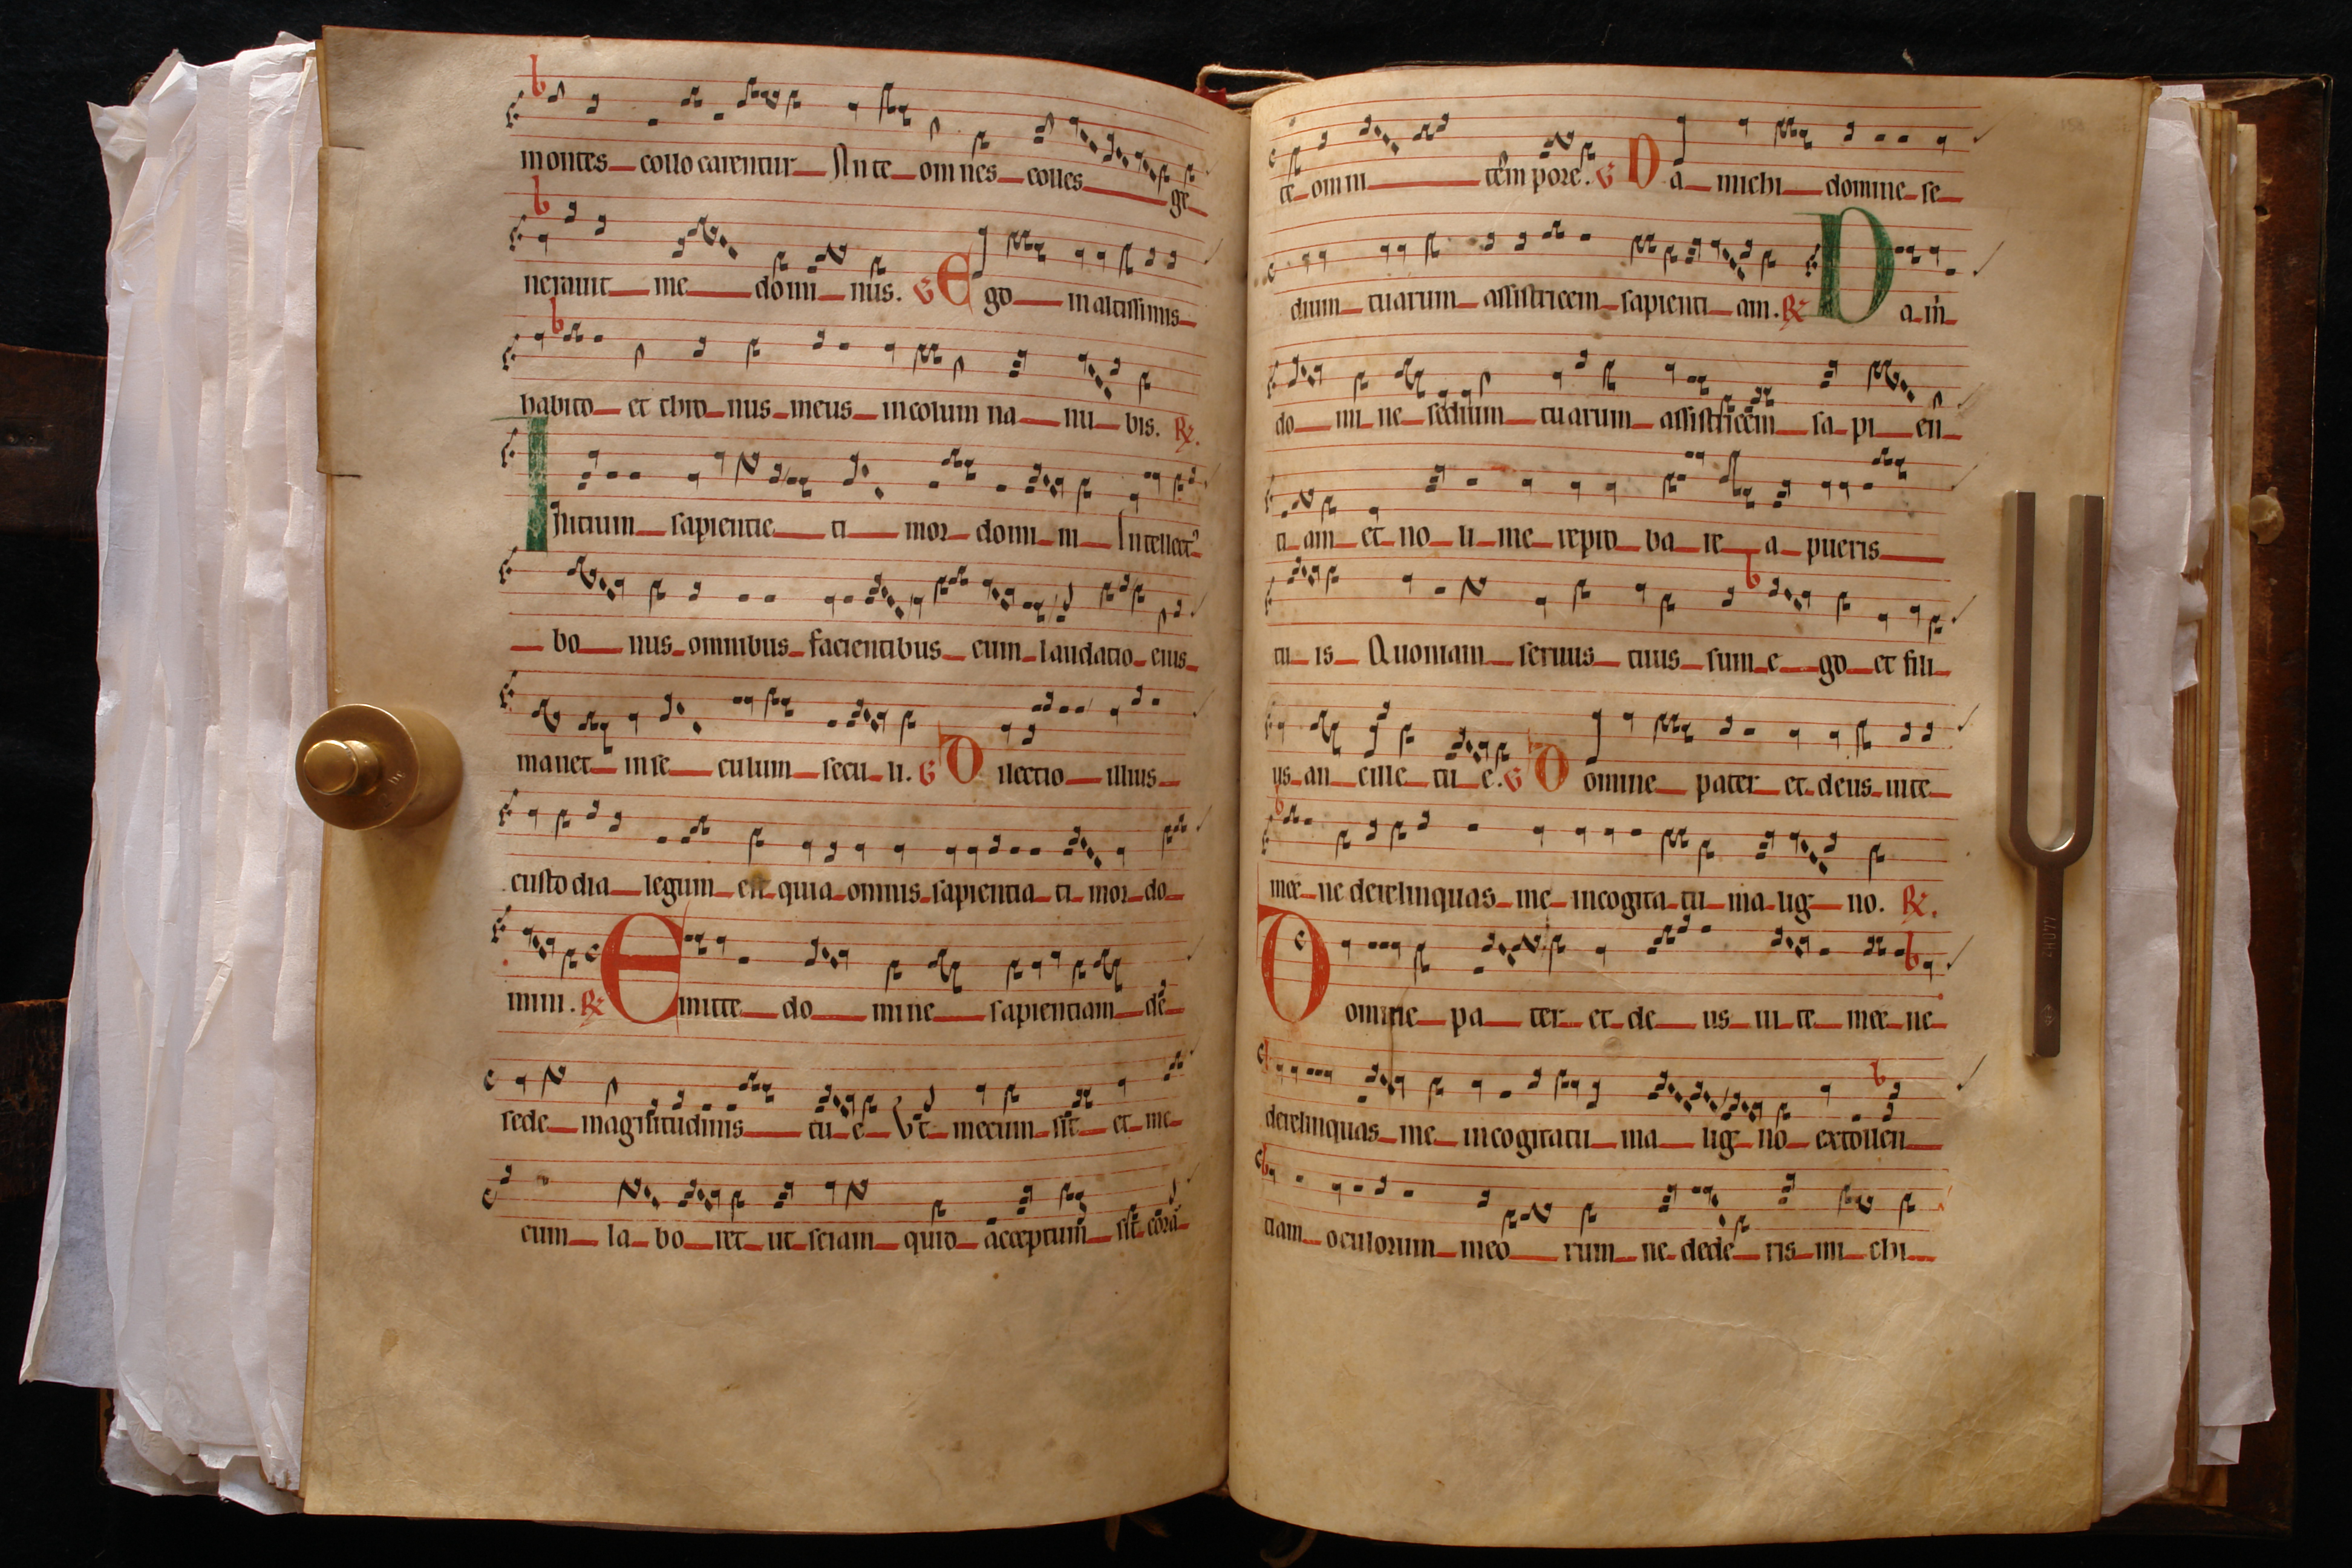 montes collocarentur Ante omnes colles ge
nerauit me domi nus. V Ego in altissimis
habito et thronus meus in columna nu bis. R.
Initium sapientie ti mor domi ni Intellect9
bo nus omnibus facientibus eum laudatio eius
manet in se culum secu li. V Dilectio illius
custodia legum est quia omnis sapientia ti mor do
mini. R Emitte do mine sapientiam de
sede magnitudinis tu e Vt mecum sit et me
cum la bo ret ut sciam quid acceptum sit corā
te omni tempore. V Da michi domine se
dium tuarum assistricem sapienti am. R Da m
do mi ne sedium tuarum assistricem sa pi en
ti am et no li me repro ba re a pueris
tu is Quoniam seruus tuus sum e go et fili
us an cille tu e. V Domine pater et deus uite
mee ne derelinquas me in cogita tu ma lig no. R.
Domine pa ter et de us ui te mee ne
derelinquas me in cogitatu ma lig no extollen
tiam oculorum meo rum ne dede ris mi chi